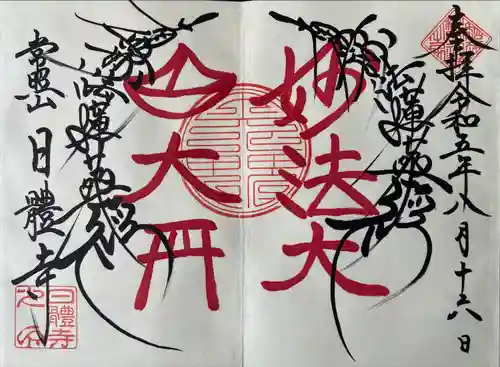 奉拝 令和五年八月十六日
南無妙法蓮華經
妙法大
南無妙法蓮華經
大
常照山 日體寺
日體寺
之印